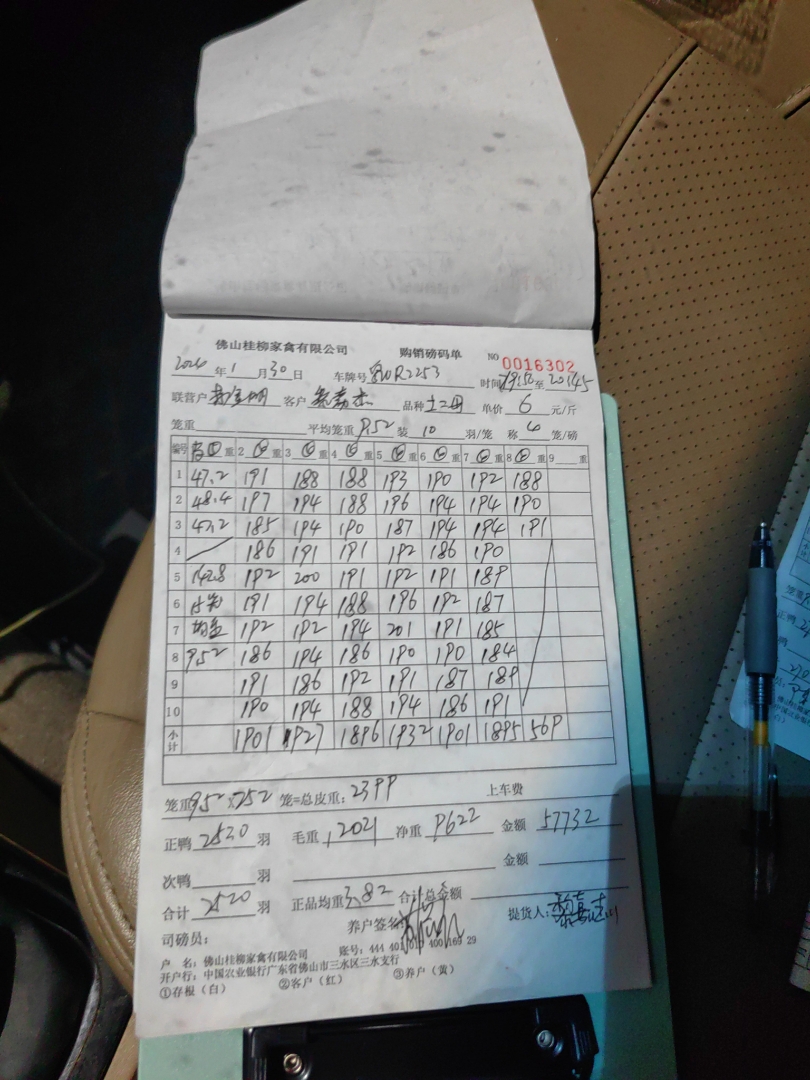 佛山桂柳家禽有限公司 购销磅码单 NO 0016302
2026 年 1 月 30 日 车牌号 R2253 时间 19:50 至 20:45
联营户 客户 品种 土二四 单价 6 元/斤
笼重 平均笼重 9.52 装 10 羽/笼 称 6 笼/磅
编号 重 2 重 3 重 4 重 5 重 6 重 7 重 8 重 9 重
1 47.2 191 188 188 193 190 192 188
2 48.4 197 194 188 196 194 194 190
3 47.2 185 194 190 187 194 194 191
4 186 191 191 192 186 190
5 142.8 192 200 191 192 191 189
6 191 194 188 196 192 187
7 192 192 194 201 191 185
8 9.52 186 194 186 190 190 184
9 191 186 192 191 187 189
10 190 194 188 194 186 191
小计 1901 1927 1896 1932 1901 1895 569
笼重 9.52 × 252 笼=总皮重: 2399 上车费
正鸭 2520 羽 毛重 12021 净重 9622 金额 57732
次鸭 羽 金额
合计 2520 羽 正品均重 3.82 合计总金额
养户签名: 提货人:
司磅员:
户 名: 佛山桂柳家禽有限公司 账号: 444 401 010 400 169 29
开户行: 中国农业银行广东省佛山市三水区三水支行
①存根(白) ②客户(红) ③养户(黄)